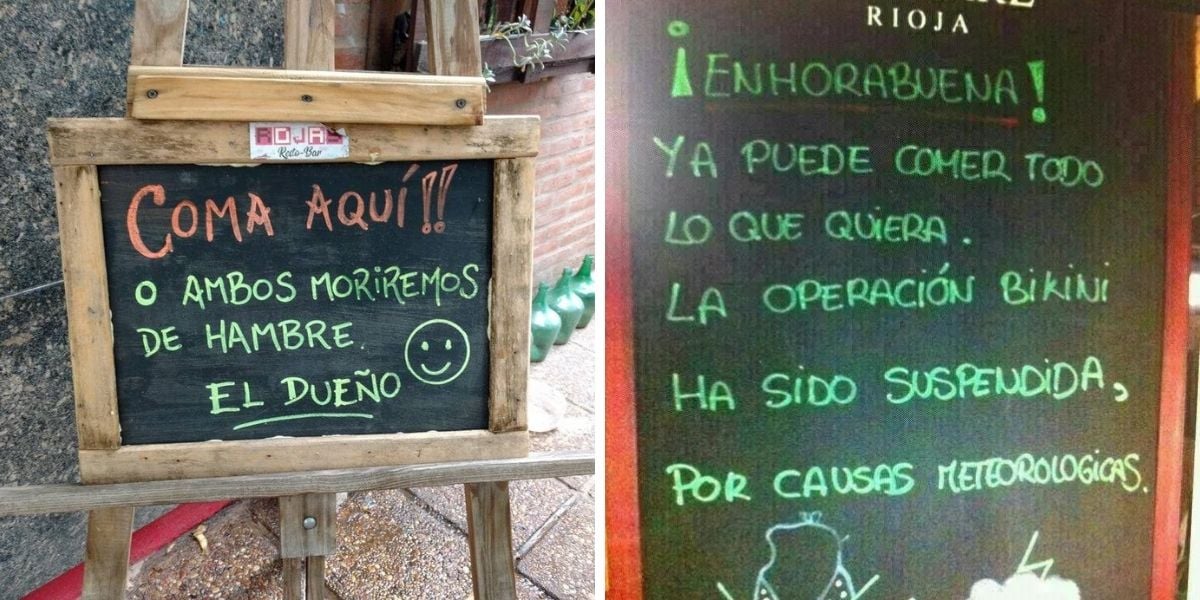 ROJAS
Resto-Bar
COMA AQUÍ!!
O AMBOS MORIREMOS
DE HAMBRE.
EL DUEÑO
RIOJA
¡ENHORABUENA!
YA PUEDE COMER TODO
LO QUE QUIERA.
LA OPERACIÓN BIKINI
HA SIDO SUSPENDIDA,
POR CAUSAS METEOROLOGICAS.